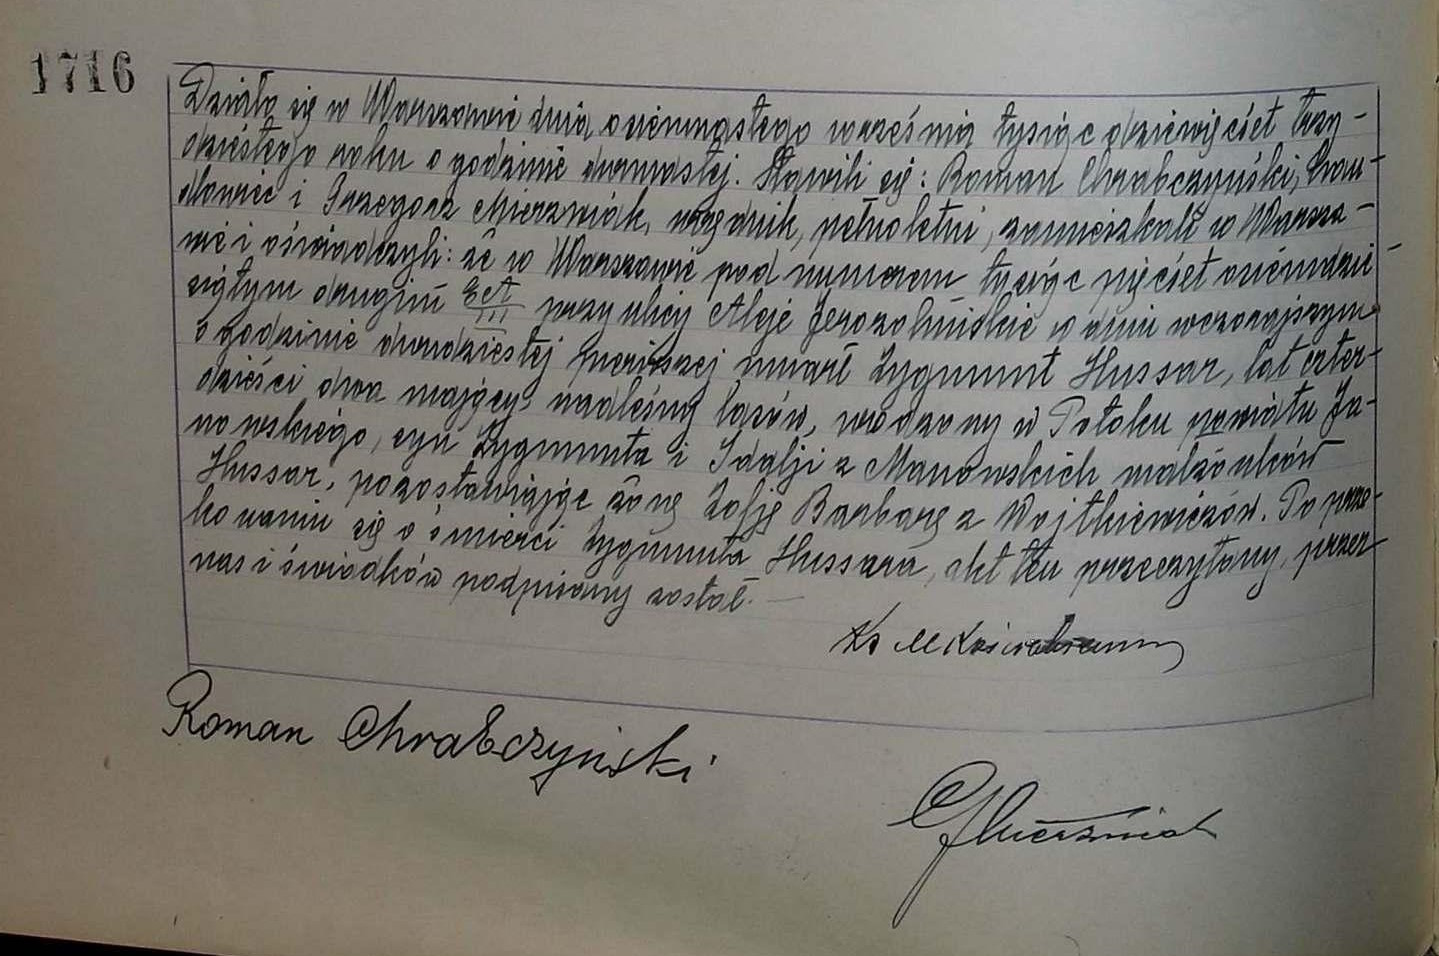 1716
Działo się w Warszawie dnia osiemnastego września tysiąc dziewięćset trzy-
dziestego roku o godzinie dwunastej. Stawili się: Roman Chrabczyński,
i Grzegorz Mierzwiak, urzędnik, pełnoletni, zamieszkali w Warsza-
wie i oświadczyli: że w Warszawie pod numerem tysiąc pięćset osiemdzie-
siątym drugim przy ulicy Aleje Jerozolimskie w dniu wczorajszym
o godzinie dwudziestej pierwszej umarł Zygmunt Hussar, lat czter-
dzieści dwa mający, nadleśny lasów, urodzony w Potoku powiatu Ja-
nowskiego, syn Zygmunta i Idalji z Manowskich małżonków
Hussar, pozostawiając żonę Zofję Barbarę z Wojtkiewiczów. Po prze-
konaniu się o śmierci Zygmunta Hussara, akt ten przeczytany, przez
nas i świadków podpisany został.
Ks M
Roman Chrabczyński
GMierzwiak